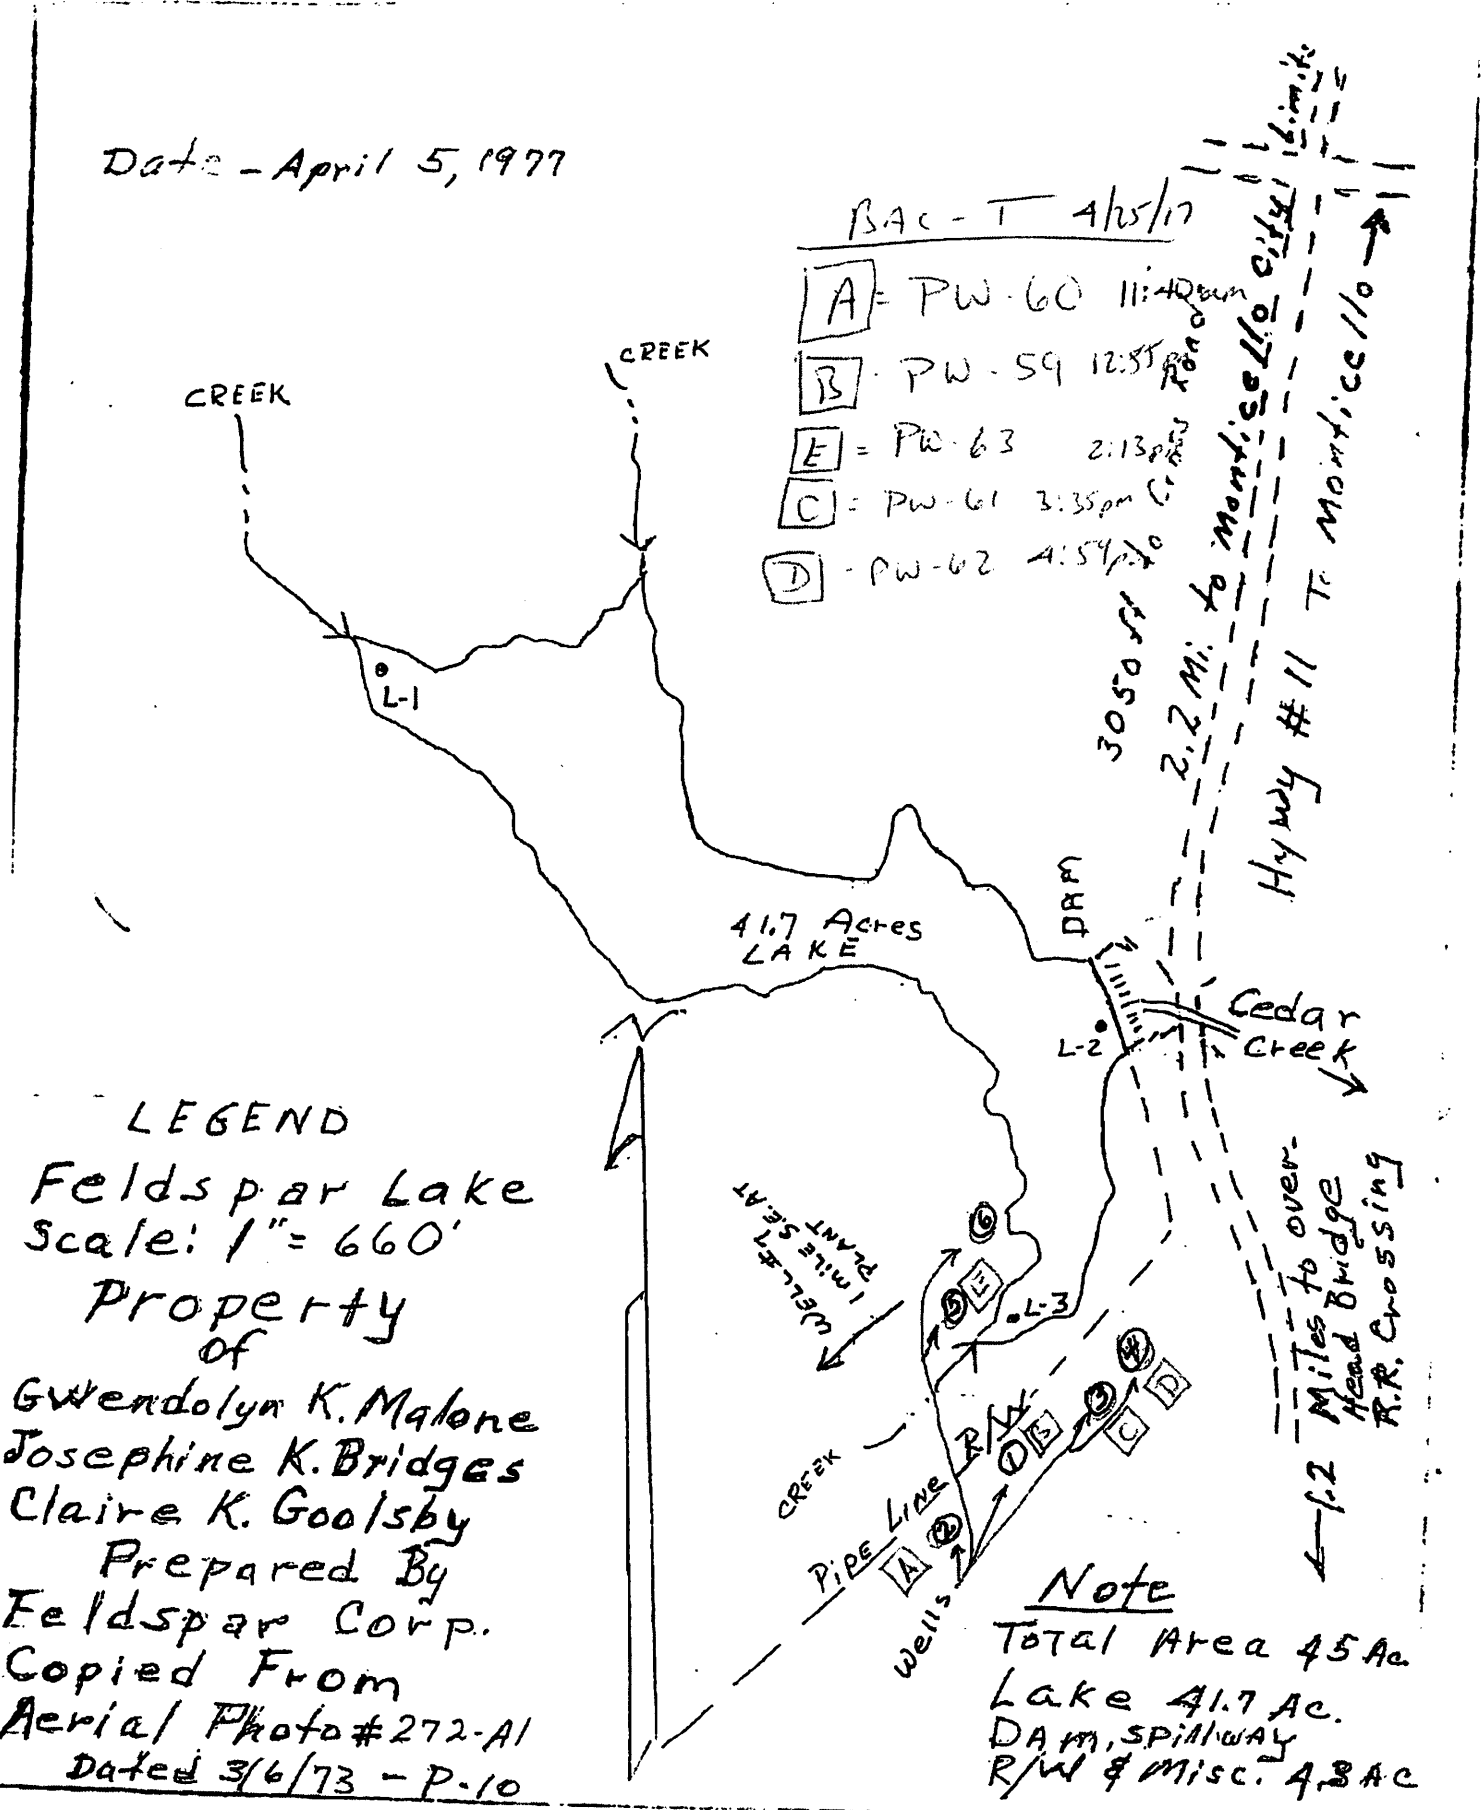 Date - April 5, 1977
BAC - T 4/25/17
A = PW-60 11:40am
B - PW-59 12:55pm
E = PW-63 2:13pm
C = PW-61 3:35pm
D - PW-62 4:54pm
CREEK
CREEK
L-1
3050 ft to Road
2.2 Mi. to Monticello City Limits
Hywy #11 To Monticello
41.7 Acres
LAKE
DAM
L-2
Cedar
Creek
1.2 Miles to over-
Head Bridge
R.R. Crossing
WELL #7
1 MILE S.E. AT
PLANT
6
5 E
L-3
4
D
3
C
1 B
2
A
CREEK
Pipe Line R/W
Wells
LEGEND
Feldspar Lake
Scale: 1" = 660'
Property
of
Gwendolyn K. Malone
Josephine K. Bridges
Claire K. Goolsby
Prepared By
Feldspar Corp.
Copied From
Aerial Photo # 272-A1
Dated 3/6/73 - P-10
Note
Total Area 45 Ac.
Lake 41.7 Ac.
DAM, SPillWAY
R/W & Misc. 4.3 AC